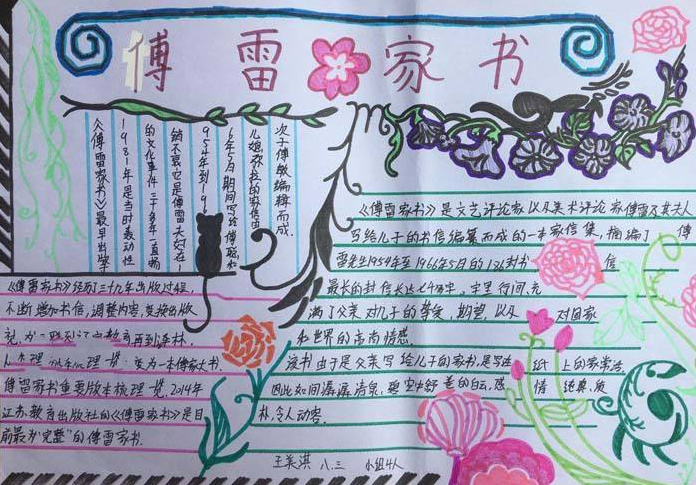 傅雷家书
《傅雷家书》最早出版于
1981年是当时轰动性
的文化事件三十多年一直畅
销不衰它是傅雷夫妇在1
954年到19
6年5月期间写给傅聪和
儿媳弥拉的家信由
次子傅敏编辑而成.
《傅雷家书》是文艺评论家以及美术评论家傅雷及其夫人
写给儿子的书信编纂而成的一本家信集,摘编了傅
雷先生1954年至1966年5月的126封书信
最长的封信长达七千多字.字里行间,充
满了父亲对儿子的挚爱,期望,以及对国家
和世界的高尚情感.
该书由于是父亲写给儿子的家书,是写在纸上的家常话,
因此如间潺潺清泉,碧空中舒卷的白云,感情纯真,质
朴,令人动容.
《傅雷家书》经历了三十几年出版过程,
不断增加书信,调整内容,变换出版
再到译林.
变为一本傅家大书.
傅雷家书重要版本梳理一览,2014年
江苏教育出版社的《傅雷家书》是目
前最为"完整"的傅雷家书.
王美淇 八.三 小组4人